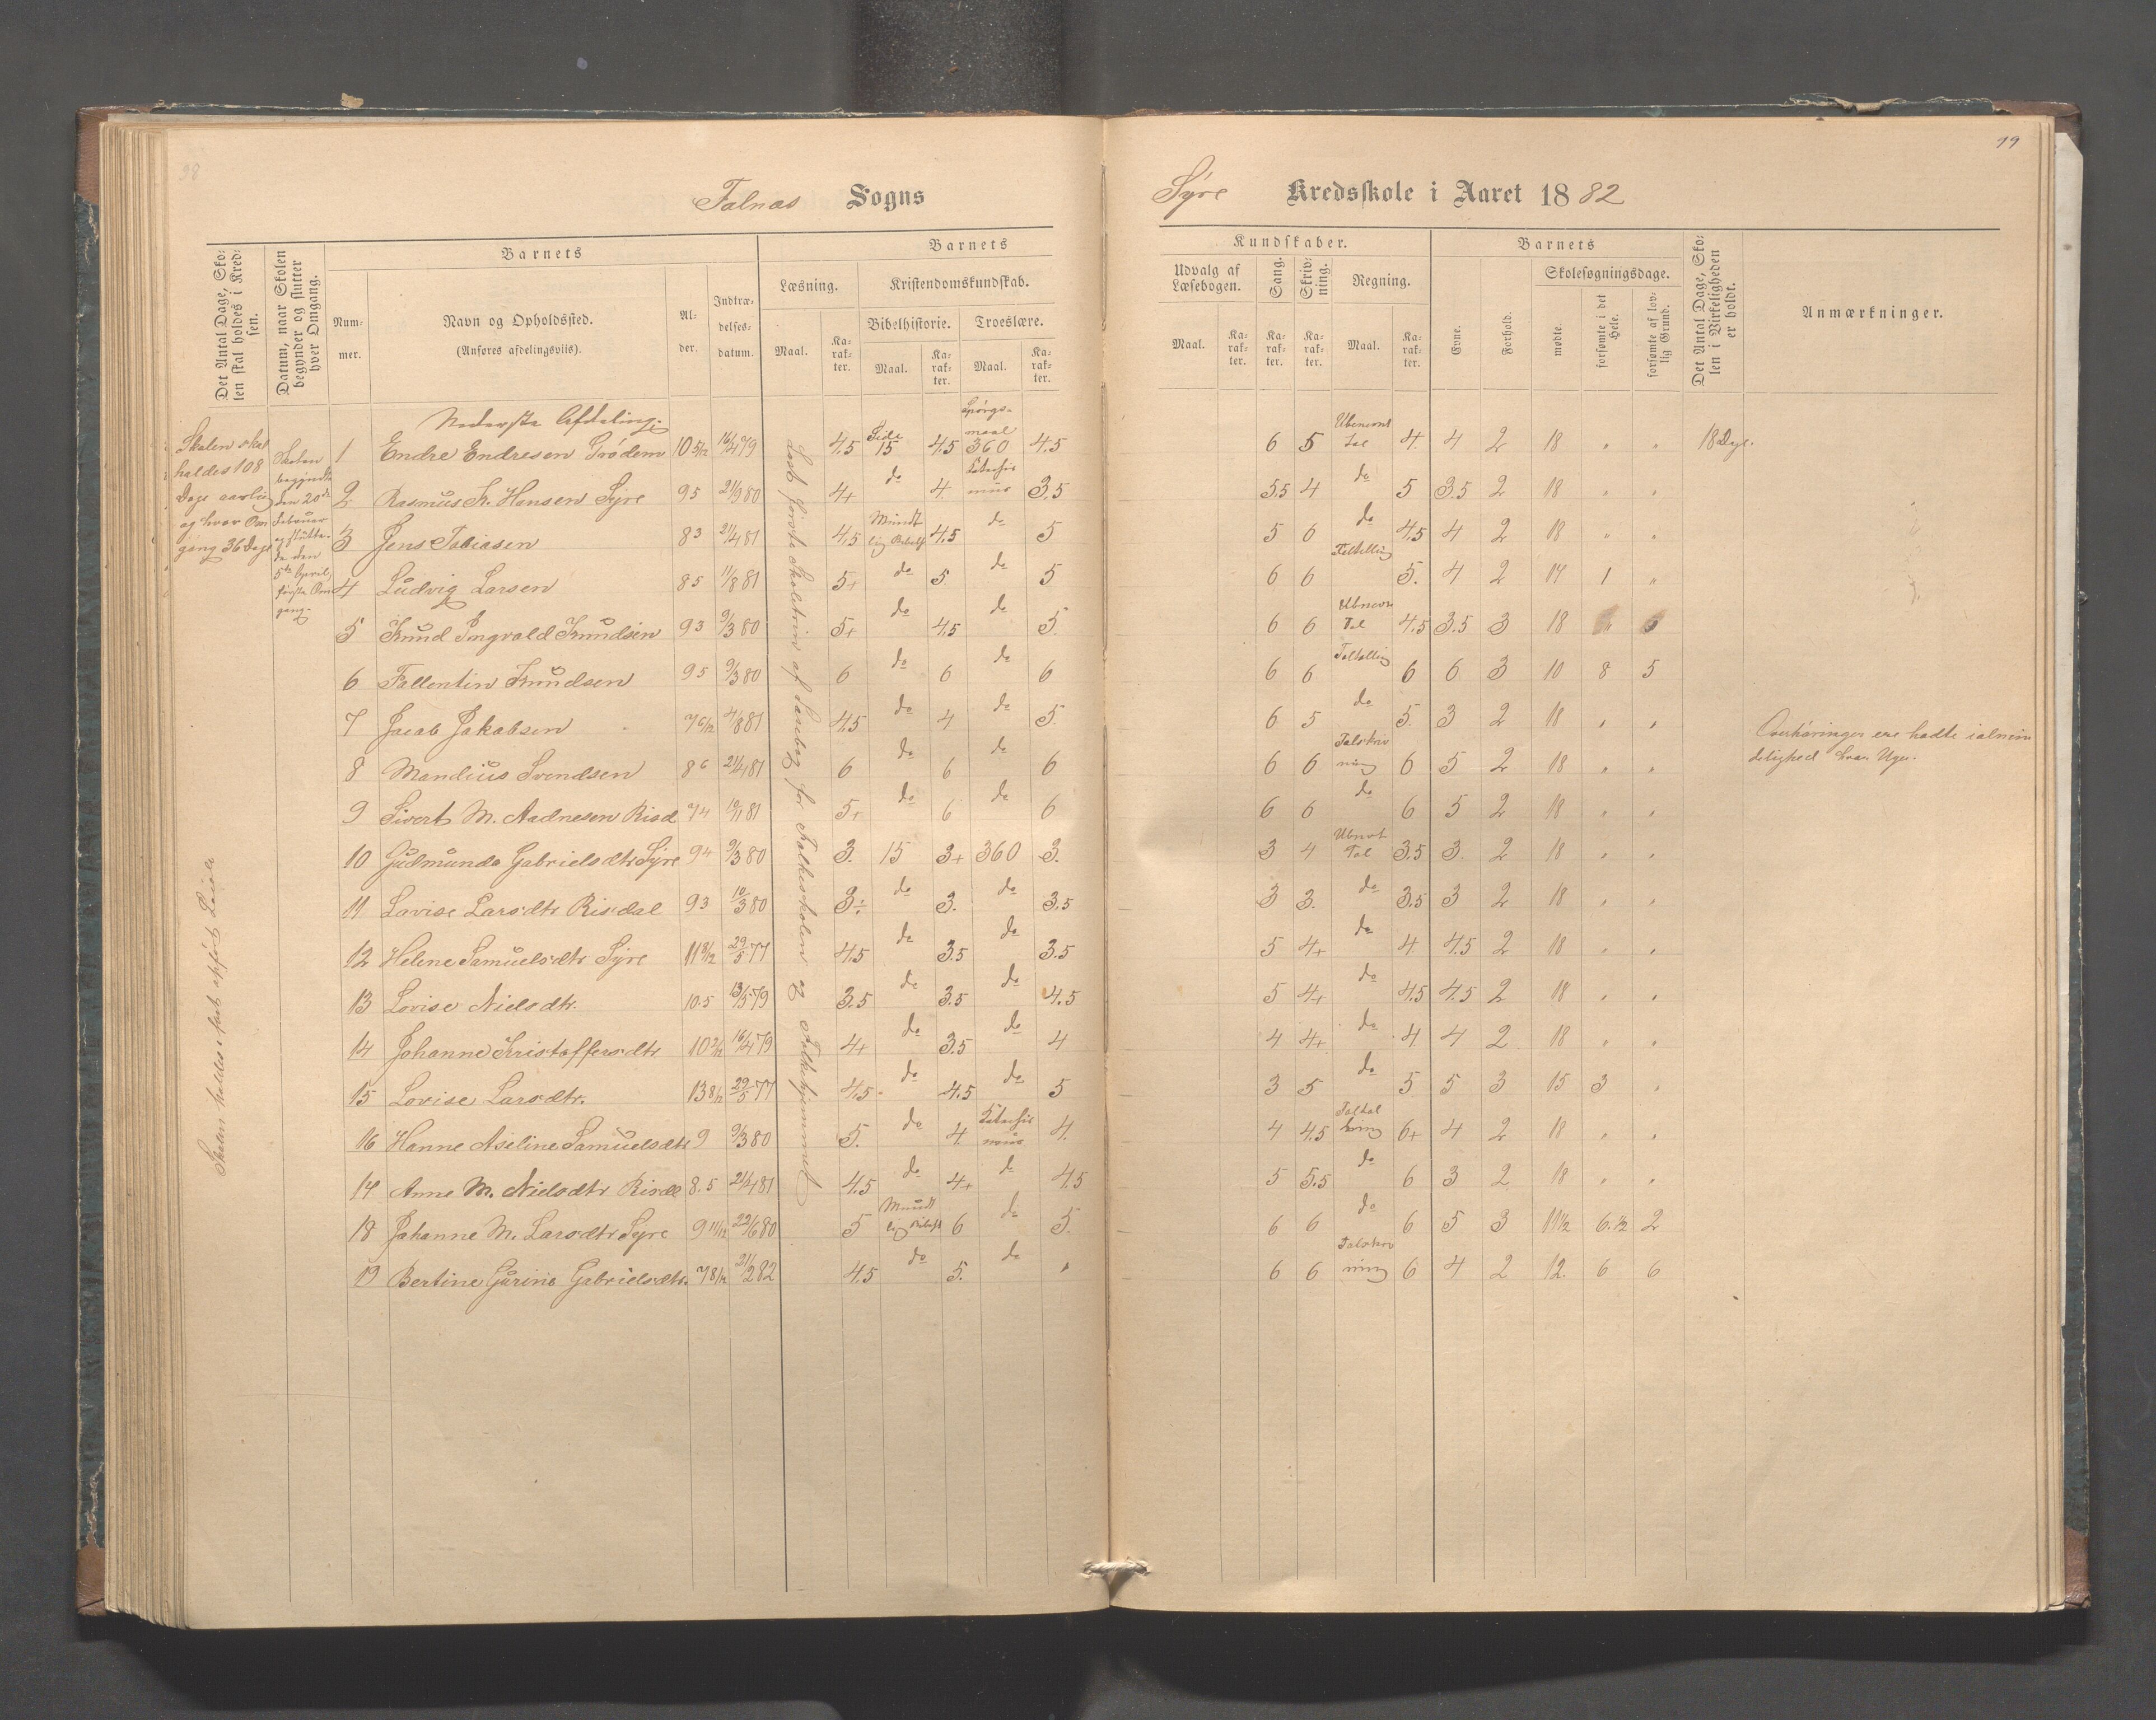 98
Falnæs Sogns
Det Antal Dage, Sko-
len skal holdes i Kred-
sen.
Datum, naar Skolen
begynder og slutter
hver Omgang.
Barnets
Num-
mer.
Navn og Opholdssted.
(Anføres afdelingsvis).
Al-
der.
Indtræ-
delses-
datum.
Barnets
Læsning.
Maal.
Ka-
rak-
ter.
Kristendomskundskab.
Bibelhistorie.
Maal.
Ka-
rak-
ter.
Troeslære.
Maal.
Ka-
rak-
ter.
Skolen skal
holdes 108
Dage aarlig
og hver Om
gang 36 Dage
Skolen
begyndte
den 20de
Februar
og slutte-
de den
5te April,
første Om
gang.
Nederste Afdeling.
1 Endre Endresen Trödem 10 5/12 16/4 79 4,5 Side 15 4,5 Spörgs-
maal 360 4,5
2 Rasmus K. Hansen Syre 9 5 21/9 80 4+ do 4. Katechis
mus 3,5
3 Jens Tobiasen 8 3 21/4 81 4,5 Mundt
lig Bibelh 4,5 do 5
4 Ludvig Larsen 8 5 11/8 81 5+ do 5 do 5
5 Knud Ingvald Knudsen 9 3 9/3 80 5+ do 4,5 do 5.
6 Fallentin Knudsen 9 5 9/3 80 6 do 6 do 6
7 Jacob Jakobsen 7 6/12 4/8 81 4,5 do 4 do 5.
8 Mandius Svendsen 8 6 21/4 81 6 do 6 do 6
9 Sivert M. Aadnesen Risd 7 4 19/1 81 5+ do 6 do 6
10 Gudmunda Gabrielsdtr Syre 9 4 9/3 80 3. 15 3+ 360 3.
11 Lovise Larsdtr Risdal 9 3 10/3 80 3÷ do 3. do 3,5
12 Helene Samuelsdtr Syre 11 9/12 29/5 77 4,5 do 3,5 do 3,5
13 Lovise Nielsdtr. 10 5 13/5 79 3,5 do 3,5 do 4,5
14 Johanne Kristoffersdtr 10 2/12 16/4 79 4+ do 3,5 do 4
15 Lovise Larsdtr. 13 8/12 29/5 77 4,5 do 4,5 do 5
16 Hanne Aseline Samuelsdtr 9 9/3 80 5. do 4. Katechis
mus 4.
17 Anne M. Nielsdtr Risdl 8 5 21/4 81 4,5 do 4+ do 4,5
18 Johanne M. Larsdtr Syre 9 11/12 22/6 80 5 Mundt
lig Bibelh 6 do 5.
19 Bertine Gurine Gabrielsdtr. 7 8/12 21/2 82 4,5 do 5. do "
Læseb. første Skoletrin af Læsebog for Folkeskolen og Folkehjemmet
Skolen holdes i fast opført Locale
99
Syre Kredsskole i Aaret 1882
Kundskaber.
Udvalg af
Læsebogen.
Maal.
Ka-
rak-
ter.
Sang.
Ka-
rak-
ter.
Skriv-
ning.
Ka-
rak-
ter.
Regning.
Maal.
Ka-
rak-
ter.
Barnets
Evne.
Forhold.
Skolesøgningsdage.
mødte.
forsømte i det
Hele.
forsømte af lov-
lig Grund.
Det Antal Dage, Sko-
len i Virkeligheden
er holdt.
Anmærkninger.
6 5 Ubenevnt
Tal 4. 4 2 18 " " 18 Dage.
5,5 4 do 5 3,5 2 18 " "
5 6 do 4,5 4 2 18 " "
6 6 Taltelling 5. 4 2 17 1 "
6 6 Ubnevn
Tal 4,5 3,5 3 18 "
6 6 Taltelling 6 6 3 10 8 5
6 5 do 5. 3 2 18 " "
6 6 Talskriv
ning 6 5 2 18 " "
6 6 do 6 5 2 18 " "
3 4 Ubnevt
Tal 3,5 3. 2 18 " "
3 3. do 3,5 3 2 18 " "
5 4+ do 4 4,5 2 18 " "
5 4+ do 4,5 4,5 2 18 " "
4 4+ do 4 4 2 18 " "
3 5 do 5 5 3 15 3 "
4 4,5 6+ 4 2 18 " "
5 5,5 do 6 3 2 18 " "
6 6 do 6 5 3 11 1/2 6 1/2 2
6 6 Talskriv
ning 6 4 2 12. 6 6
Overhøringer ere holdte i almin
delighed hver Uge.